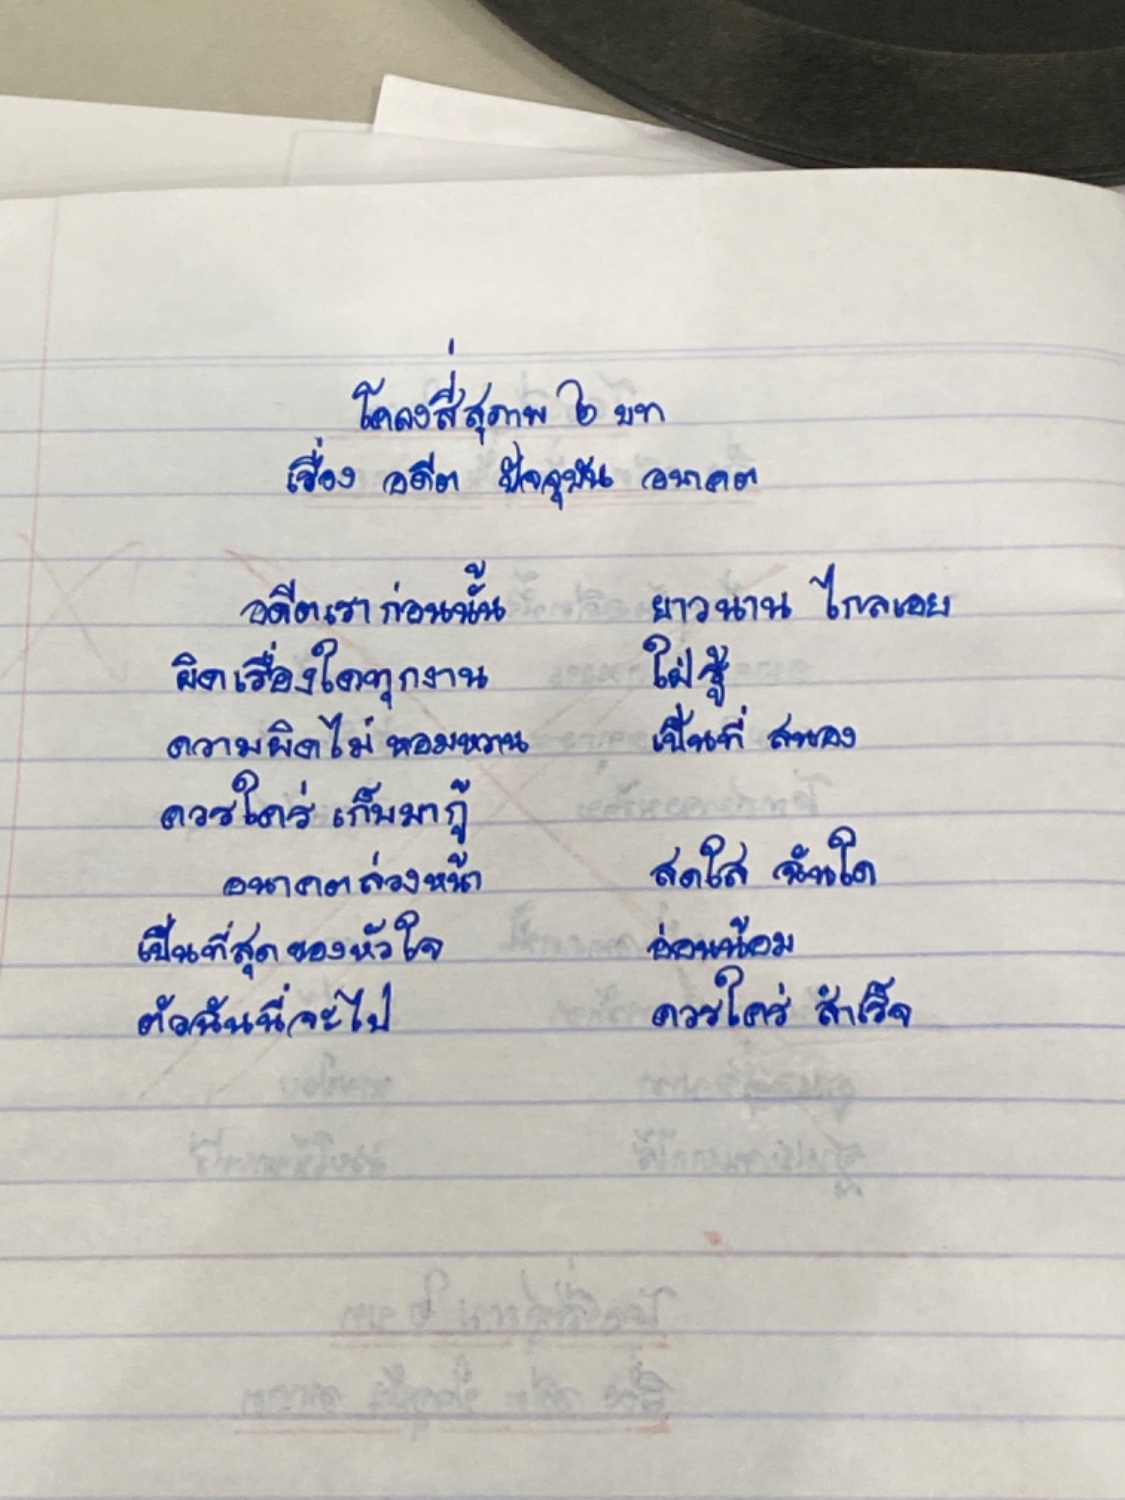 โคลงสี่สุภาพ ๒ บท
เรื่อง อดีต ปัจจุบัน อนาคต
อดีตเราก่อนนั้น ยาวนาน ไกลเอย
ผิดเรื่องใดทุกงาน ใฝ่สู้
ความผิดไม่หอมหวาน เป็นที่ สนอง
ควรใคร่ เก็บมากู้
อนาคตล่วงหน้า สดใส ฉันใด
เป็นที่สุดของหัวใจ อ่อนน้อม
ตัวฉันนี่จะไป ควรใคร่ สำเร็จ